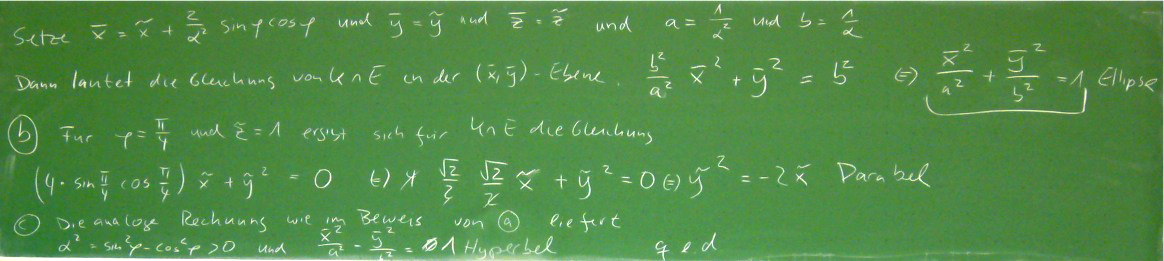 Setze x̄ = x̃ + 2/α² sin φ cos φ und ȳ = ỹ und z̄ = z̃ und a = 1/α² und b = 1/α
Dann lautet die Gleichung von K∩E in der (x̄,ȳ)-Ebene. b²/a² x̄² + ȳ² = b² ⇔ x̄²/a² + ȳ²/b² = 1 Ellipse
(b) Für φ = π/4 und z̃ = 1 ergibt sich für K∩E die Gleichung
(4 · sin π/4 cos π/4) x̃ + ỹ² = 0 ⇔ 4 √2/2 √2/2 x̃ + ỹ² = 0 ⇔ ỹ² = -2x̃ Parabel
(c) Die analoge Rechnung wie im Beweis von (a) liefert
α² = sin²φ - cos²φ > 0 und x̄²/a² - ȳ²/b² = 1 Hyperbel q e.d